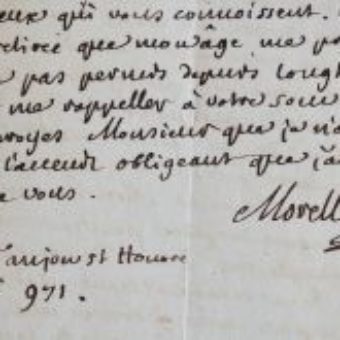 eux qui vous connoissent.
que mon âge me
pas permis depuis long
me rappeller à votre sou
Monsieur que je n'a
l'accueil obligeant que j'ai
vous.
Morell
anjou st Honoré
971.